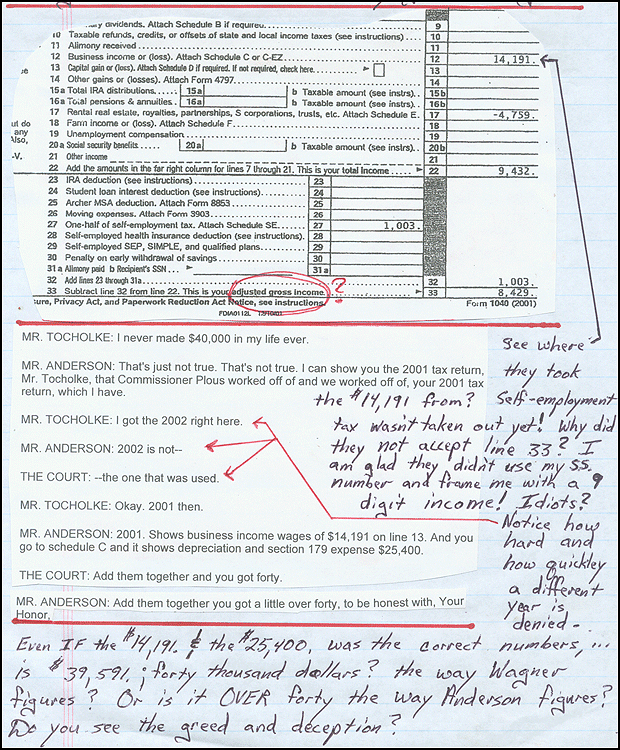 dividends. Attach Schedule B if required. 9
10 Taxable refunds, credits, or offsets of state and local income taxes (see instructions) 10
11 Alimony received 11
12 Business income or (loss). Attach Schedule C or C-EZ 12 14,191.
13 Capital gain or (loss). Attach Schedule D if required. If not required, check here 13
14 Other gains or (losses). Attach Form 4797 14
15a Total IRA distributions 15a b Taxable amount (see instrs) 15b
16a Total pensions & annuities 16a b Taxable amount (see instrs) 16b
17 Rental real estate, royalties, partnerships, S corporations, trusts, etc. Attach Schedule E. 17 -4,759.
18 Farm income or (loss). Attach Schedule F 18
19 Unemployment compensation 19
20a Social security benefits 20a b Taxable amount (see instrs) 20b
21 Other income 21
22 Add the amounts in the far right column for lines 7 through 21. This is your total income 22 9,432.
23 IRA deduction (see instructions) 23
24 Student loan interest deduction (see instructions) 24
25 Archer MSA deduction. Attach Form 8853 25
26 Moving expenses. Attach Form 3903 26
27 One-half of self-employment tax. Attach Schedule SE 27 1,003.
28 Self-employed health insurance deduction (see instructions) 28
29 Self-employed SEP, SIMPLE, and qualified plans 29
30 Penalty on early withdrawal of savings 30
31a Alimony paid b Recipient's SSN 31a
32 Add lines 23 through 31a 32 1,003.
33 Subtract line 32 from line 22. This is your adjusted gross income ? 33 8,429.
ure, Privacy Act, and Paperwork Reduction Act Notice, see instructions. Form 1040 (2001)
FDIA0112L
ut do
any
Also,
-V.
MR. TOCHOLKE: I never made $40,000 in my life ever.
MR. ANDERSON: That's just not true. That's not true. I can show you the 2001 tax return,
Mr. Tocholke, that Commissioner Plous worked off of and we worked off of, your 2001 tax
return, which I have.
MR. TOCHOLKE: I got the 2002 right here.
MR. ANDERSON: 2002 is not--
THE COURT: --the one that was used.
MR. TOCHOLKE: Okay. 2001 then.
MR. ANDERSON: 2001. Shows business income wages of $14,191 on line 13. And you
go to schedule C and it shows depreciation and section 179 expense $25,400.
THE COURT: Add them together and you got forty.
MR. ANDERSON: Add them together you got a little over forty, to be honest with, Your
Honor,
See where
they took
the $14,191 from? Self-employment
tax wasn't taken out yet! Why did
they not accept line 33? I
am glad they didn't use my S.S.
number and frame me with a 9
digit income! Idiots?
Notice how
hard and
how quickley
a different
year is
denied -
Even IF the $14,191. & the $25,400, was the correct numbers,...
is $39,591.; forty thousand dollars? the way Wagner
figures? Or is it OVER forty the way Anderson figures?
Do you see the greed and deception?